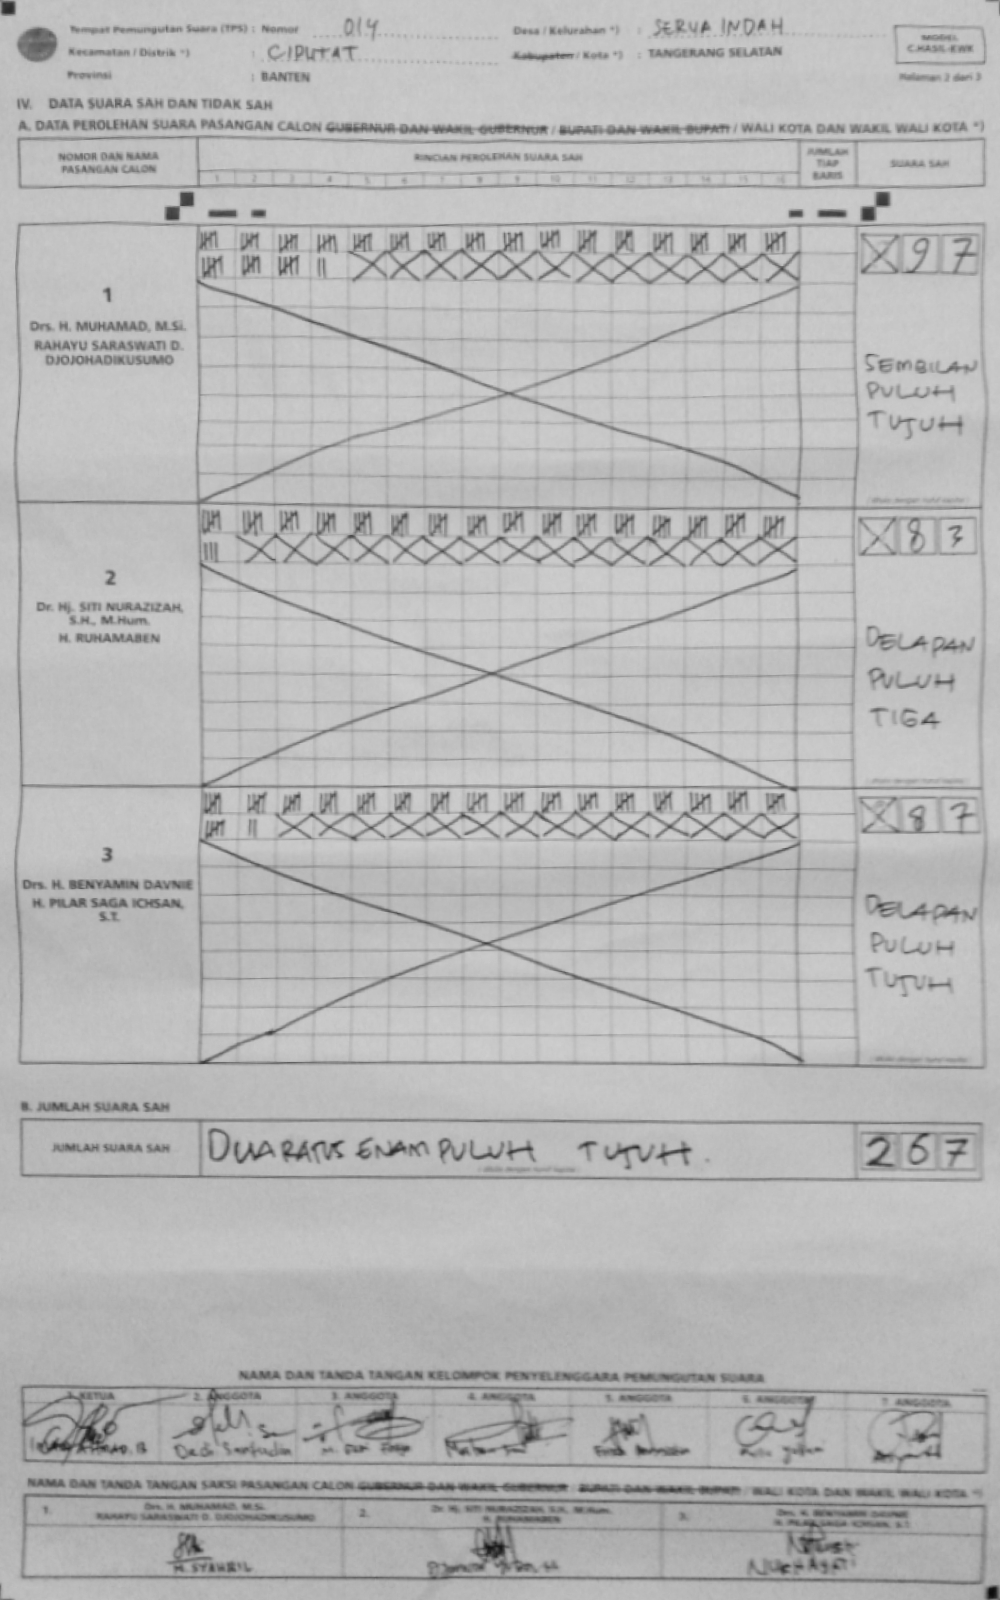 Tempat Pemungutan Suara (TPS) : Nomor 014 Desa / Kelurahan *) : SERUA INDAH
Kecamatan / Distrik *) : CIPUTAT Kabupaten / Kota *) : TANGERANG SELATAN
Provinsi : BANTEN
MODEL
C.HASIL-KWK
Halaman 2 dari 2
IV. DATA SUARA SAH DAN TIDAK SAH
A. DATA PEROLEHAN SUARA PASANGAN CALON GUBERNUR DAN WAKIL GUBERNUR / BUPATI DAN WAKIL BUPATI / WALI KOTA DAN WAKIL WALI KOTA *)
NOMOR DAN NAMA
PASANGAN CALON
RINCIAN PEROLEHAN SUARA SAH
1 2 3 4 5 6 7 8 9 10 11 12 13 14 15 16
JUMLAH
TIAP
BARIS
SUARA SAH
1
Drs. H. MUHAMAD, M.Si.
RAHAYU SARASWATI D.
DJOJOHADIKUSUMO
X 9 7
SEMBILAN
PULUH
TUJUH
2
Dr. Hj. SITI NURAZIZAH,
S.H., M.Hum.
H. RUHAMABEN
X 8 3
DELAPAN
PULUH
TIGA
3
Drs. H. BENYAMIN DAVNIE
H. PILAR SAGA ICHSAN,
S.T.
X 8 7
DELAPAN
PULUH
TUJUH
B. JUMLAH SUARA SAH
JUMLAH SUARA SAH
DUA RATUS ENAM PULUH TUJUH.
2 6 7
NAMA DAN TANDA TANGAN KELOMPOK PENYELENGGARA PEMUNGUTAN SUARA
1. KETUA 2. ANGGOTA 3. ANGGOTA 4. ANGGOTA 5. ANGGOTA 6. ANGGOTA 7. ANGGOTA
Dedi
NAMA DAN TANDA TANGAN SAKSI PASANGAN CALON GUBERNUR DAN WAKIL GUBERNUR / BUPATI DAN WAKIL BUPATI / WALI KOTA DAN WAKIL WALI KOTA *)
1. Drs. H. MUHAMAD, M.Si.
RAHAYU SARASWATI D. DJOJOHADIKUSUMO
2. Dr. Hj. SITI NURAZIZAH, S.H., M.Hum.
H. RUHAMABEN
3. Drs. H. BENYAMIN DAVNIE
H. PILAR SAGA ICHSAN, S.T.
M. SYAHRIL
NURHAYATI